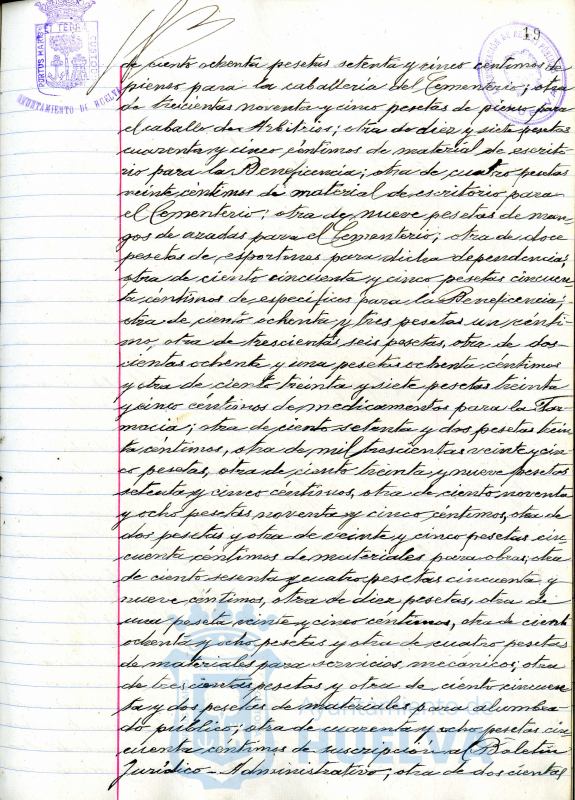 19
PORTUS MARIS ET TERRÆ CUSTODIA
AYUNTAMIENTO DE HUELVA
de ciento ochenta pesetas setenta y cinco céntimos de
pienso para la caballería del Cementerio; otra
de trescientas noventa y cinco pesetas de pienso para
el caballo de Arbitrios; otra de diez y siete pesetas
cuarenta y cinco céntimos de material de escrito-
rio para la Beneficencia; otra de cuatro pesetas
veinte céntimos de material de escritorio para
el Cementerio; otra de nueve pesetas de man-
gos de azadas para el Cementerio; otra de doce
pesetas de esportones para dicha dependencia;
otra de ciento cincuenta y cinco pesetas cincuen-
ta céntimos de específicos para la Beneficencia;
otra de ciento ochenta y tres pesetas un cénti-
mo, otra de trescientas seis pesetas, otra de dos-
cientas ochenta y una pesetas ochenta céntimos
y otra de ciento treinta y siete pesetas treinta
y cinco céntimos de medicamentos para la Far-
macia; otra de ciento setenta y dos pesetas trein-
ta céntimos, otra de mil trescientas veinte y cin-
co pesetas, otra de ciento treinta y nueve pesetas
setenta y cinco céntimos, otra de ciento noventa
y ocho pesetas noventa y cinco céntimos, otra de
dos pesetas y otra de veinte y cinco pesetas cin-
cuenta céntimos de materiales para obras; otra
de ciento sesenta y cuatro pesetas cincuenta y
nueve céntimos, otra de diez pesetas, otra de
una peseta veinte y cinco céntimos, otra de ciento
ochenta y ocho pesetas y otra de cuatro pesetas
de materiales para servicios mecánicos; otra
de trescientas pesetas y otra de ciento cincuen-
ta y dos pesetas de materiales para alumbra-
do público; otra de cuarenta y ocho pesetas cin-
cuenta céntimos de suscripción al Boletín
Jurídico-Administrativo; otra de doscientas
Ayuntamiento de
HUELVA